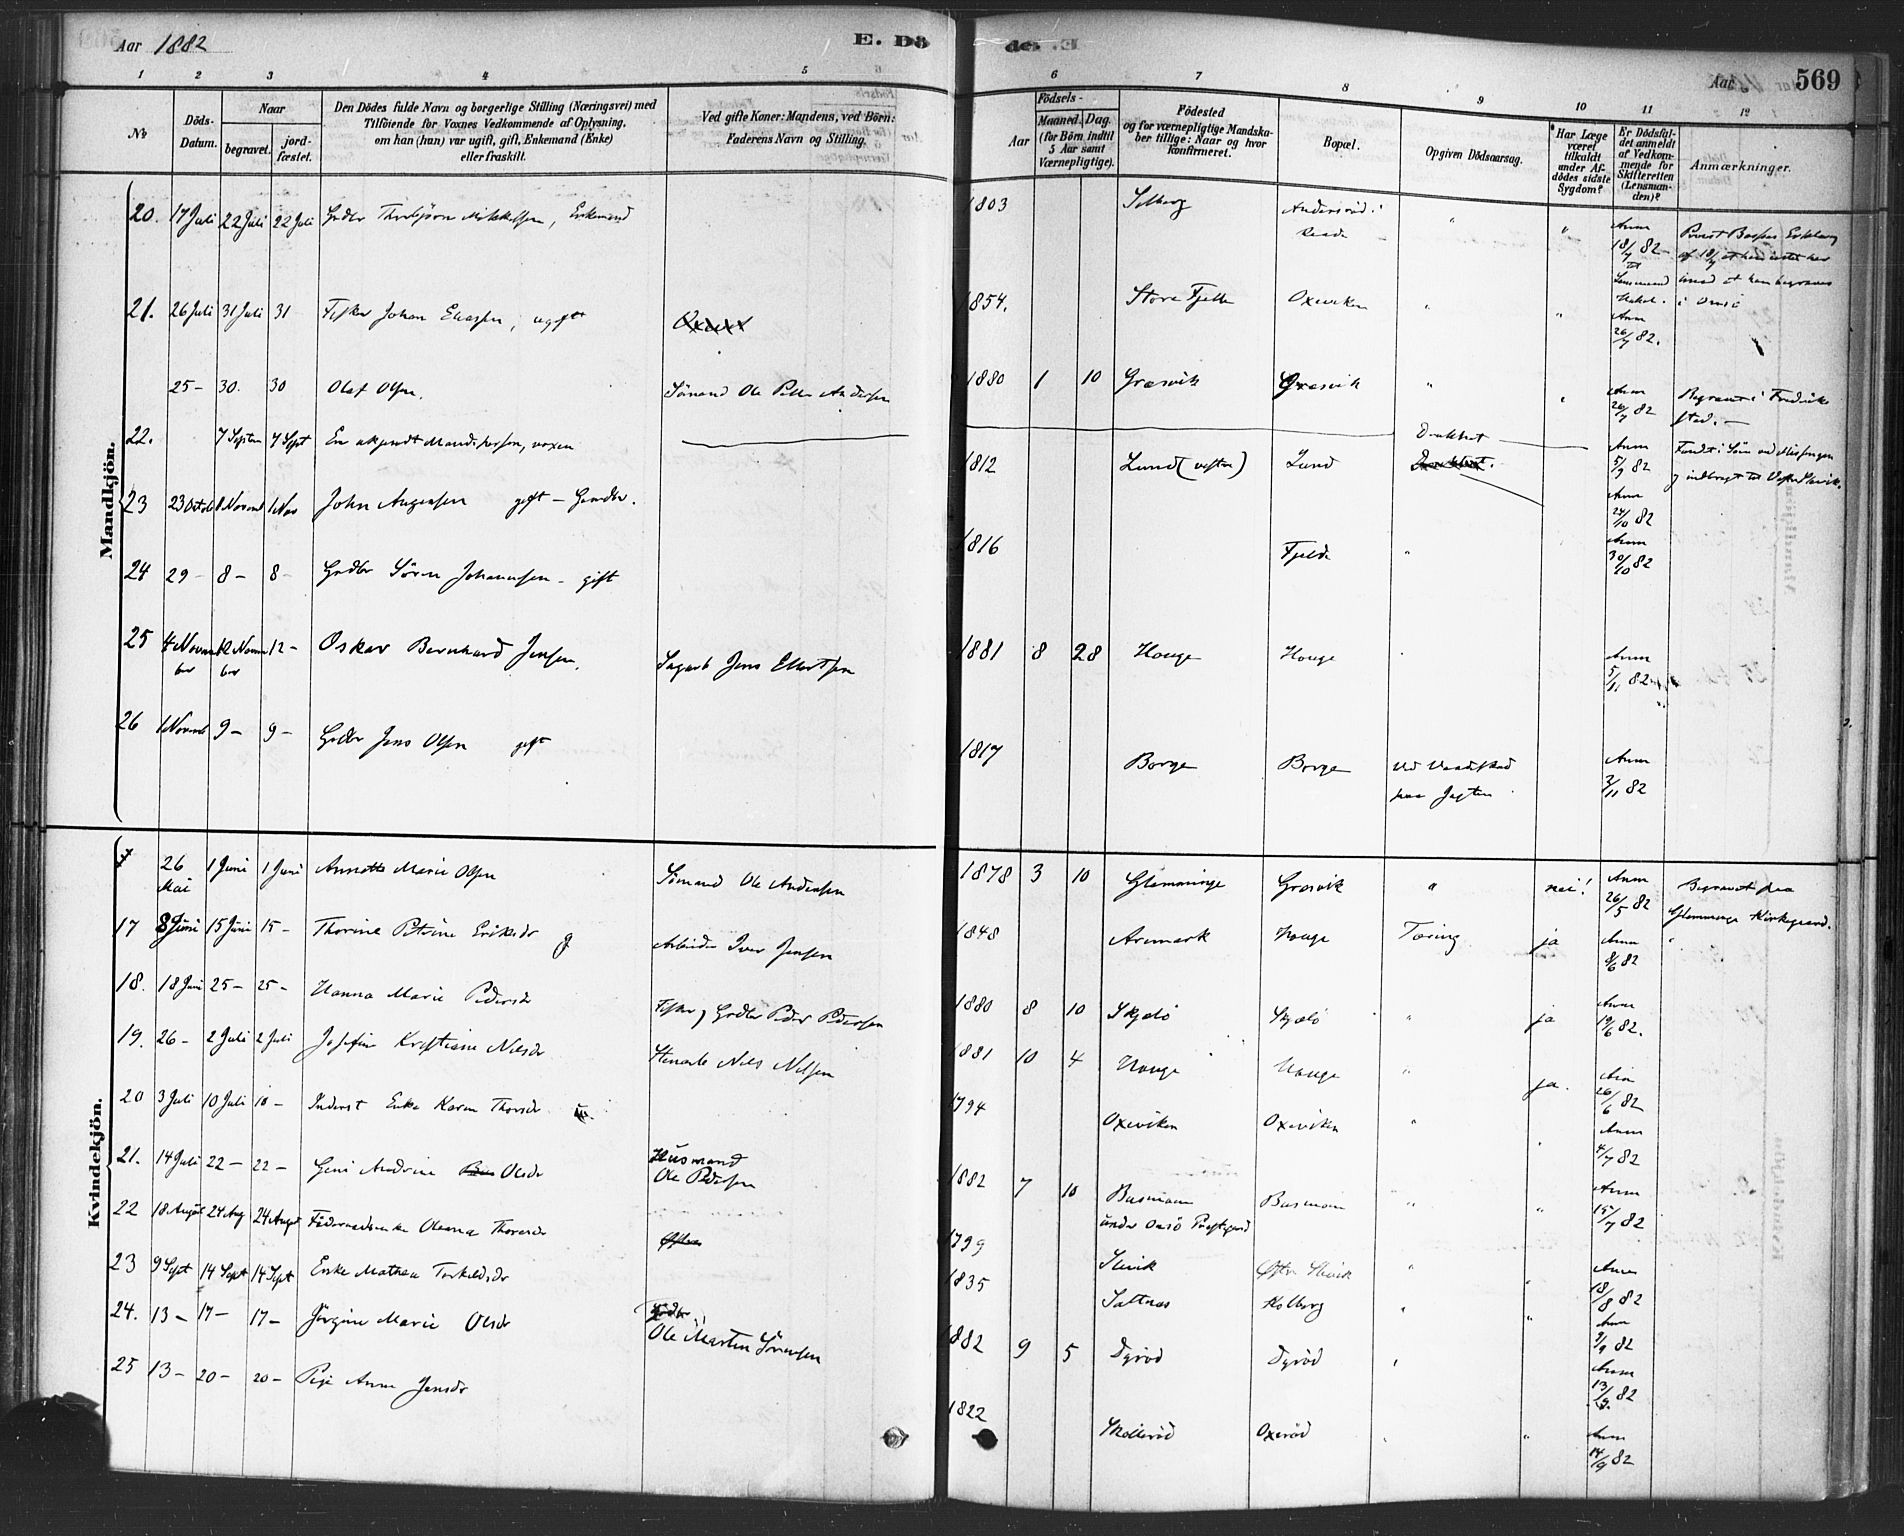 Aar 1882
E. Dö
de. E
Aar
569
1 2 3 4 5 6 7 8 9 10 11 12
No
Döds-
Datum.
Naar
begravet.
jord-
fæstet.
Den Dödes fulde Navn og borgerlige Stilling (Næringsvei) med
Tilföiende for Voxnes Vedkommende af Oplysning,
om han (hun) var ugift, gift, Enkemand (Enke)
eller fraskilt.
Ved gifte Koner: Mandens, ved Börn:
Faderens Navn og Stilling.
Födsels-
Aar
Maaned. Dag.
(for Börn indtil
5 Aar samt
Værnepligtige).
Födested
og for værnepligtige Mandska-
ber tillige: Naar og hvor
konfirmeret.
Bopæl.
Opgiven Dödsaarsag.
Har Læge
været
tilkaldt
under Af-
dödes sidste
Sygdom?
Er Dödsfal-
det anmeldt
af Vedkom-
mende for
Skifteretten
(Lensman-
den)?
Anmærkninger.
Mandkjön.
20. 17 Juli 22 Juli 22 Juli Gdbr Thorbjörn Mikkelsen, Enkemand 1803 Solberg Andersröd i " " Anm
Raade 18/7 82 -
21. 26 Juli 31 Juli 31 Fisker Johan Eliassen, ugift 1854. Store Fjelle Oxeviken " " Anm
26/7 82.
25 - 30. 30 Olaf Olsen. Sömand Ole Peder Andersen 1880 1 10 Græsvik Græsvik " " Anm Begravet i Fredrik-
26/7 82 stad. -
22. 7 Septem 7 Sept En ukjendt Mandsperson, voxen Druknet Anm
5/9 82
23 23 Octob 1 Novemb 1 Nov John Augensen gift - Gaardbr. 1812 Lund (vestre) Lund Anm
24/10 82
24 29 - 8 - 8 - Grdbr Sören Johannesen - gift 1816 Fjelde " Anm
30/10 82
25 4 Novem 12 Novem 12 - Oskar Bernhard Jensen. Sagarb Jens Ellertsen 1881 8 28 Houge Houge Anm
ber ber 5/11 82
26 1 Novemb 9 - 9 - Grdbr Jens Olsen gift 1817 Borge Borge Ved Vaadeskud Anm
paa Jagten 2/11 82
Kvindekjön.
26 1 Juni 1 Juni Annette Marie Olsen Sömand Ole Andersen 1878 3 10 Glemminge Græsvik " nei! Anm Begravet paa
Mai 26/5 82 Glemminge Kirkegaard.
17 8 Juni 15 Juni 15 - Thorine Petrine Eriksdr g Arbeider Iver Jensen 1848 Aremark Houge Tæring ja Anm
8/6 82
18. 18 Juni 25 - 25 - Hanna Marie Pedersdr Fisker og Grdbr Peder Pedersen 1880 8 10 Skjelö Skjelö " ja Anm
19/6 82.
19. 26 - 2 Juli 2 Juli Josefine Kristiane Nilsdr Stenarb Nils Nilsen 1881 10 4 Houge Houge " ja. Anm
26/6 82
20 3 Juli 10 Juli 10 - Inderst Enke Karen Thorsdr 1794 Oxeviken Oxeviken " " Anm
4/7 82
21. 14 Juli 22 - 22 - Andrine Olsdr Husmand
Ole Pedersen 1882 7 10 Basmoen Basmoen " " Anm
under Onsö Præstegaard 15/7 82
22 18 August 24 Aug 24 August Föderaadsenke Oleana Thoresdr 1799 Slevik Östre Slevik " " Anm
18/8 82
23 9 Sept 14 Sept 14 Sept Enke Mathea Torkildsdr 1835 Saltnes Kolberg " " Anm
9/9 82
24. 13 - 17 - 17 - Jörgine Marie Olsdr Ole Martin Sörensen 1882 9 5 Dyröd Dyröd " Anm
13/9 82
25 13 - 20 - 20 - Pige Anne Jensdr 1822 Mölleröd Oxeröd " " Anm
14/9 82